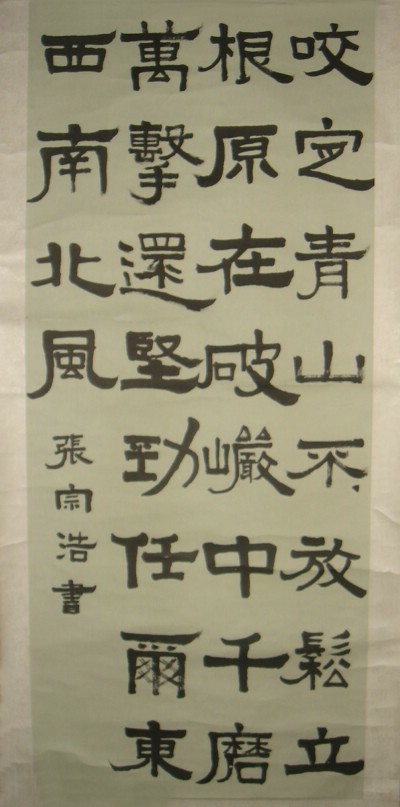 咬定青山不放鬆立
根原在破巖中千磨
萬擊還堅勁任爾東
西南北風
張宗浩書